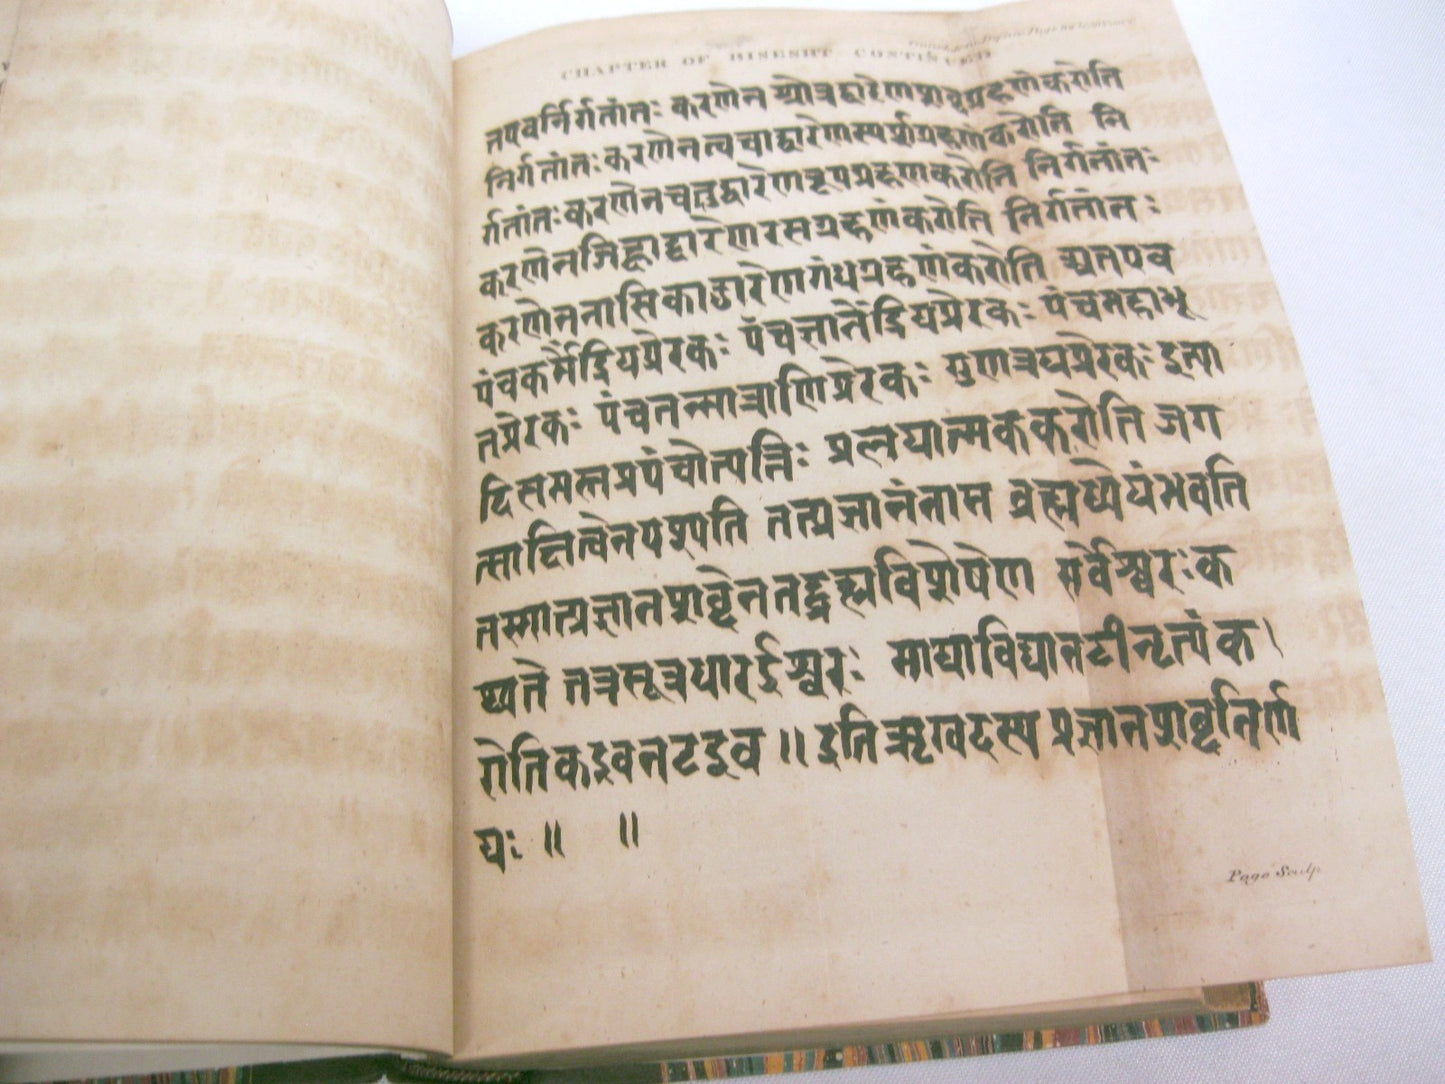 CHAPTER OF BISESHT CONTINUED
तपवर्निर्गतांतः करणेन श्रोत्रद्वारेणशब्दग्रहणंकरोति
निर्गतांतः करणेनत्वचाद्वारेणस्पर्शग्रहणंकरोति नि
र्गतांतः करणेनचक्षुद्वारेणरूपग्रहणंकरोति निर्गतांतः
करणेनजिह्वाद्वारेणरसग्रहणंकरोति निर्गतांतः
करणेननासिकाद्वारेणगंधग्रहणंकरोति अतएव
पंचकर्मेंद्रियप्रेरकः पंचज्ञानेंद्रियप्रेरकः पंचमहाभू
तप्रेरकः पंचतन्मात्राणिप्रेरकः गुणत्रयप्रेरकः इत्या
दिसमस्तप्रपंचोत्पत्तिः प्रलयात्मककरोति जग
त्साक्षित्वेनपश्यति तत्प्रज्ञानंनाम ब्रह्मध्येयंभवति
तस्मात्प्रज्ञानशब्देनतद्ब्रह्मविशेषेण सर्वेश्वरः क
थ्यते तत्रसूत्रधारईश्वरः मायाविद्यानटीनृत्यं क
रोतिकइवनटइव ॥ इतिऋग्वेदस्य प्रज्ञानशब्दनिर्ण
यः ॥ ॥
Page Sculp